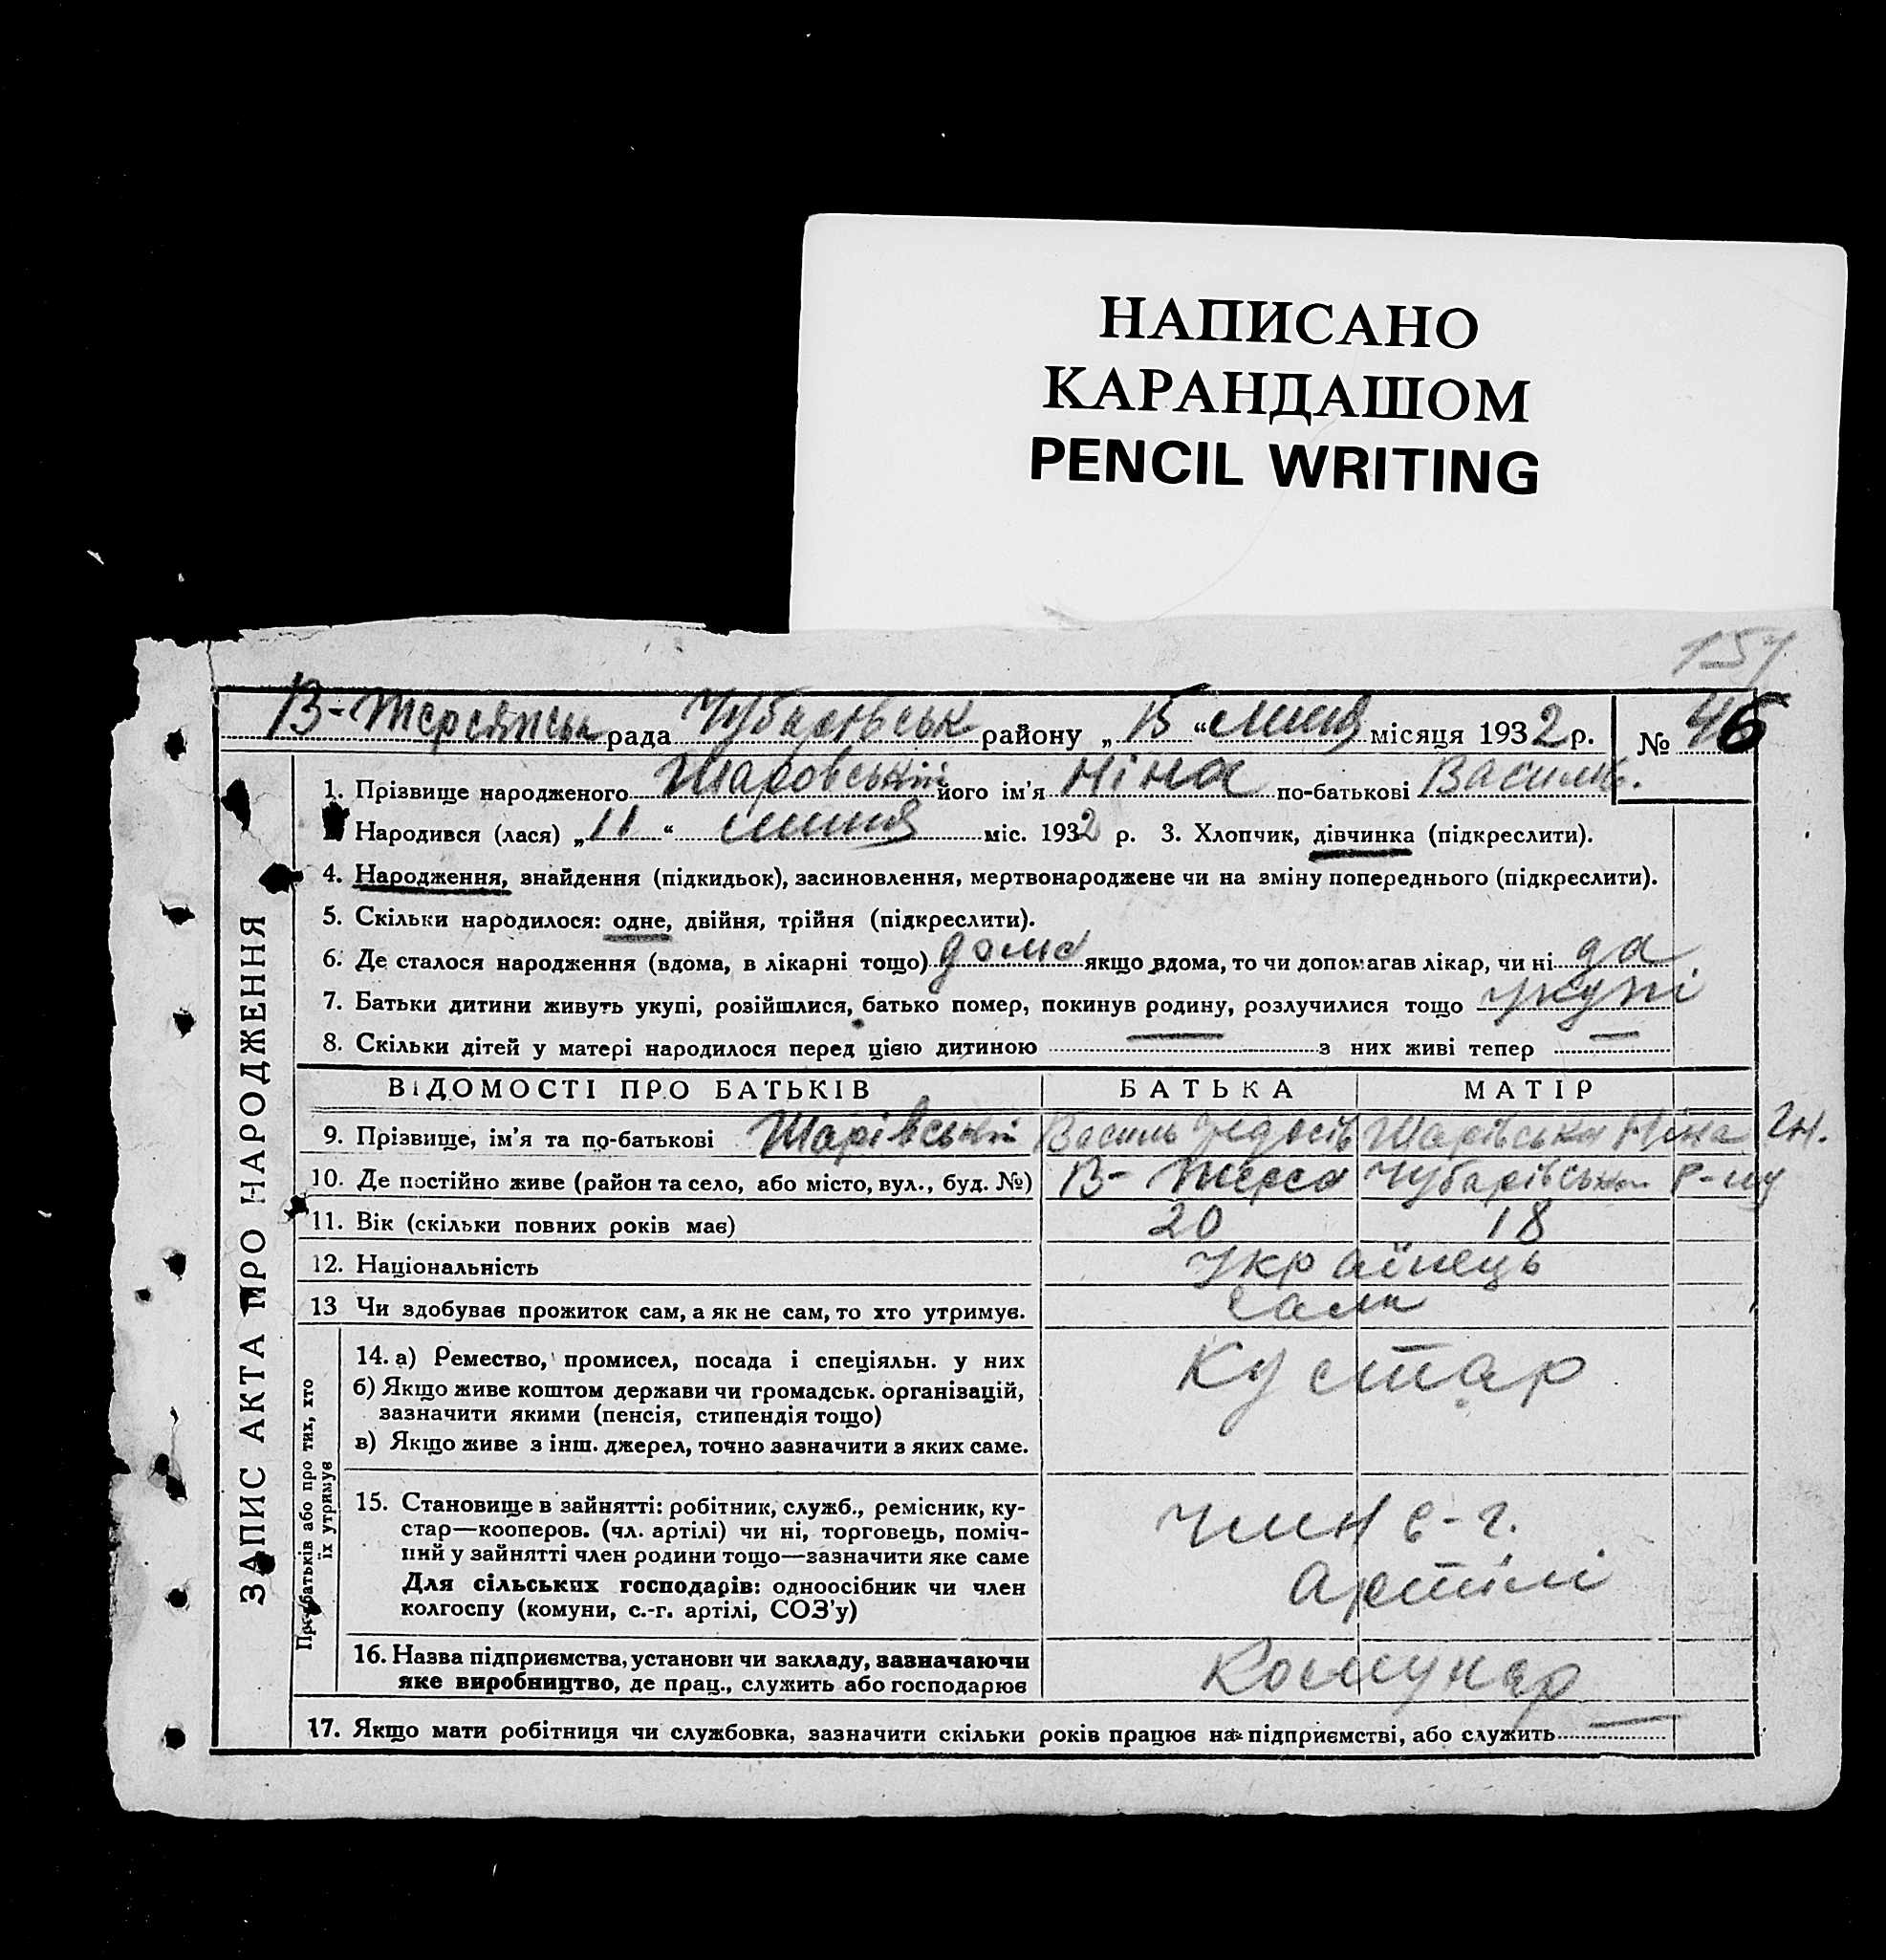 НАПИСАНО
КАРАНДАШОМ
PENCIL WRITING
157
В-Терсянська рада Чубарівськ району „15“ липня місяця 1932 р. № 46
1. Прізвище народженого Шаровський його ім'я Ніна по-батькові Василь.
Народився (лася) „11“ липня міс. 1932 р. 3. Хлопчик, дівчинка (підкреслити).
4. Народження, знайдення (підкидьок), засиновлення, мертвонароджене чи на зміну попереднього (підкреслити).
5. Скільки народилося: одне, двійня, трійня (підкреслити).
6. Де сталося народження (вдома, в лікарні тощо) дома якщо вдома, то чи допомагав лікар, чи ні да
7. Батьки дитини живуть укупі, розійшлися, батько помер, покинув родину, розлучилися тощо укупі
8. Скільки дітей у матері народилося перед цією дитиною — з них живі тепер —
ВІДОМОСТІ ПРО БАТЬКІВ БАТЬКА МАТІР
9. Прізвище, ім'я та по-батькові Шарівський Василь Федосів Шарівська Ніна
10. Де постійно живе (район та село, або місто, вул., буд. №) В-Терса Чубарівськ Р-ну
11. Вік (скільки повних років має) 20 18
12. Національність Українець
13 Чи здобуває прожиток сам, а як не сам, то хто утримує. сами
Про батьків або про тих, хто їх утримує
14. а) Ремество, промисел, посада і спеціяльн. у них Кустар
б) Якщо живе коштом держави чи громадськ. організацій,
зазначити якими (пенсія, стипендія тощо)
в) Якщо живе з інш. джерел, точно зазначити з яких саме.
15. Становище в зайнятті: робітник, служб., ремісник, ку-
стар—кооперов. (чл. артілі) чи ні, торговець, поміч-
ний у зайнятті член родини тощо—зазначити яке саме
Для сільських господарів: одноосібник чи член
колгоспу (комуни, с.-г. артілі, СОЗ'у)
член с-г.
артілі
16. Назва підприємства, установи чи закладу, зазначаючи
яке виробництво, де прац., служить або господарює
Комунар
17. Якщо мати робітниця чи службовка, зазначити скільки років працює на підприємстві, або служить —
ЗАПИС АКТА ПРО НАРОДЖЕННЯ